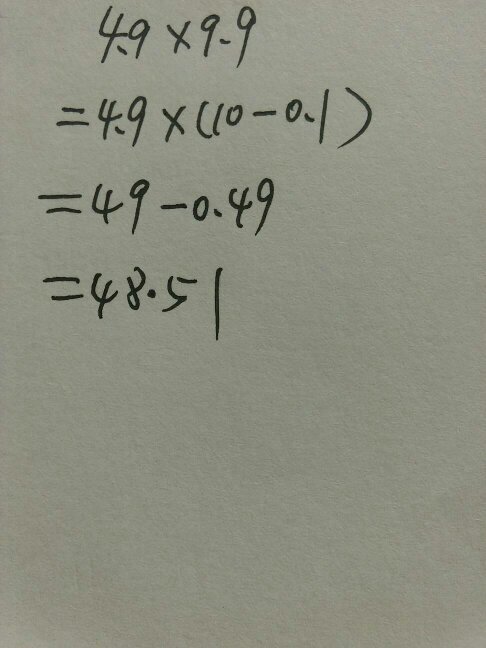 4.9×9.9
=4.9×(10-0.1)
=49-0.49
=48.51